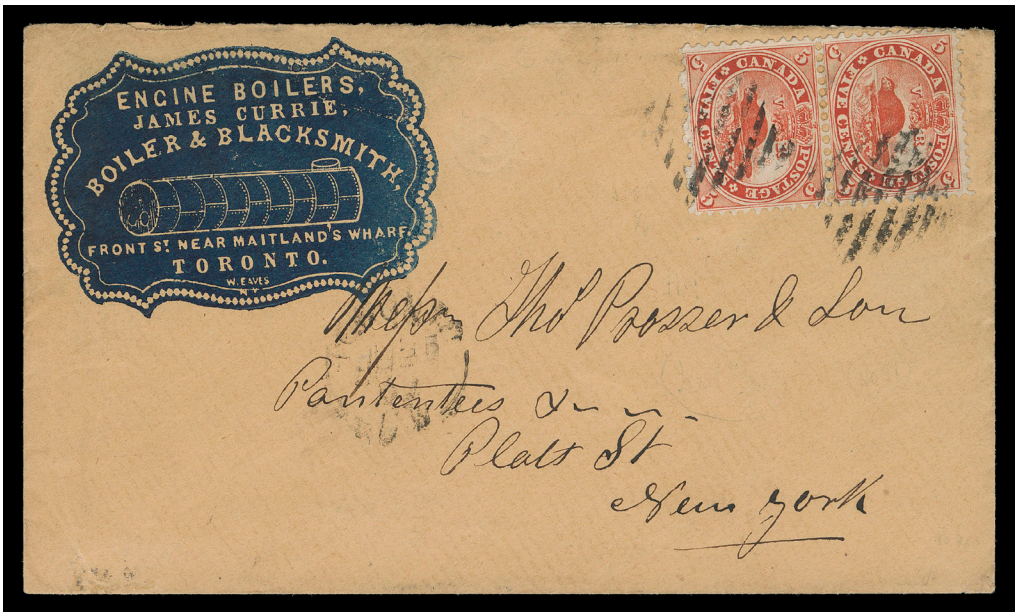 ENGINE BOILERS,
JAMES CURRIE,
BOILER & BLACKSMITH,
FRONT ST. NEAR MAITLAND'S WHARF.
TORONTO.
W. EAVES
N.Y
5 CANADA POSTAGE 5 FIVE CENTS
5 CANADA POSTAGE 5 FIVE CENTS
V R
Messrs Thos Prosser & Son
Pantentees &
Platt St
New York